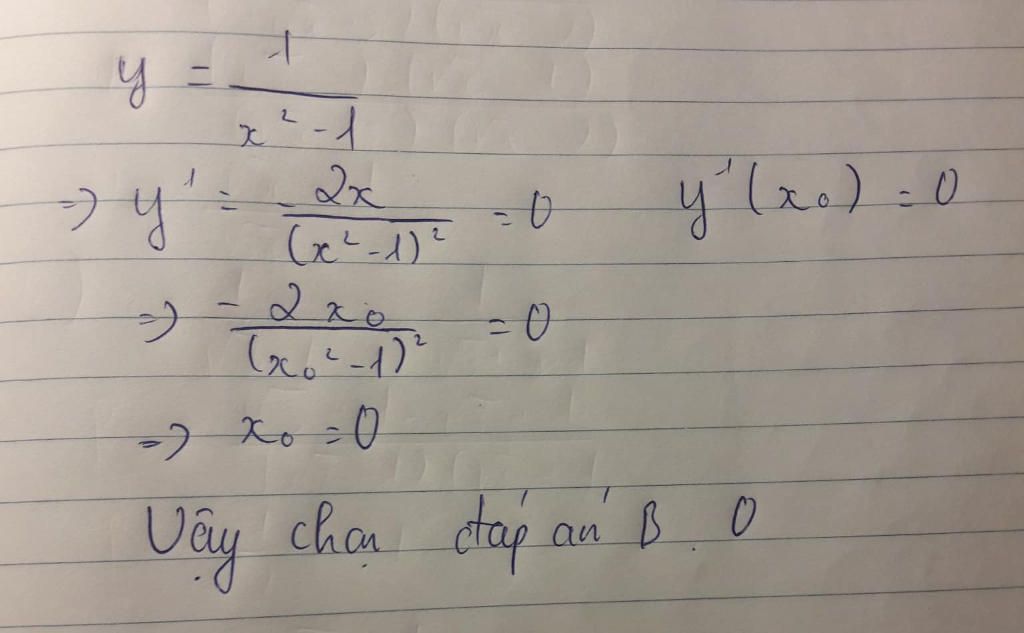 y = 1/(x² - 1)
=> y' = -2x/(x² - 1)² = 0 y'(x₀) = 0
=> -2x₀/(x₀² - 1)² = 0
=> x₀ = 0
Vậy chọn đáp án B. 0